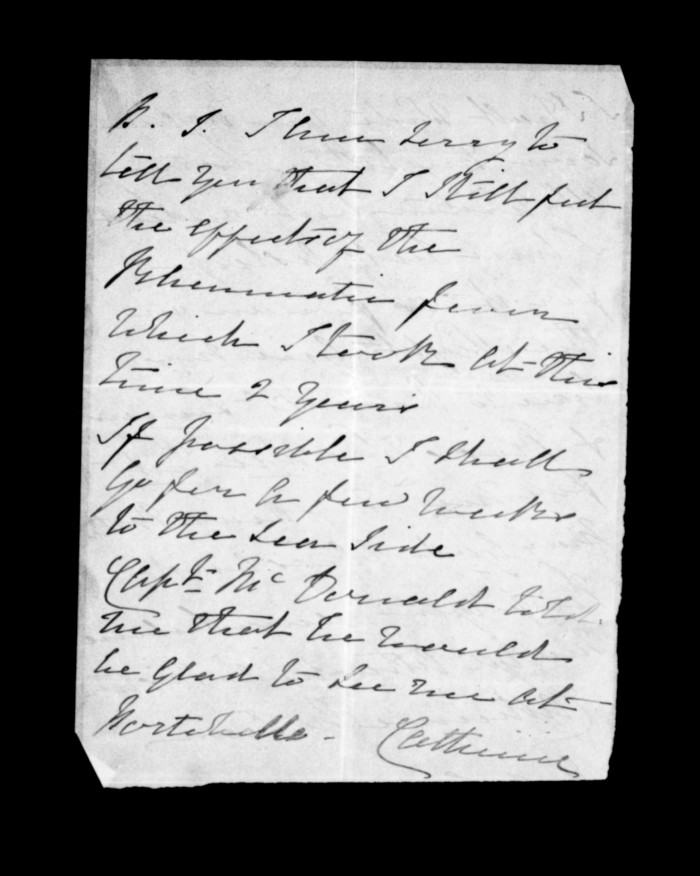 P. S. I am sorry to
tell you that I still feel
the effects of the
Rheumatic fever
which I took at this
time 2 years
If possible I shall
go for a few weeks
to the sea side
Capt. Mc Donald told
me that he would
be glad to see me at
Portobello - Catherine